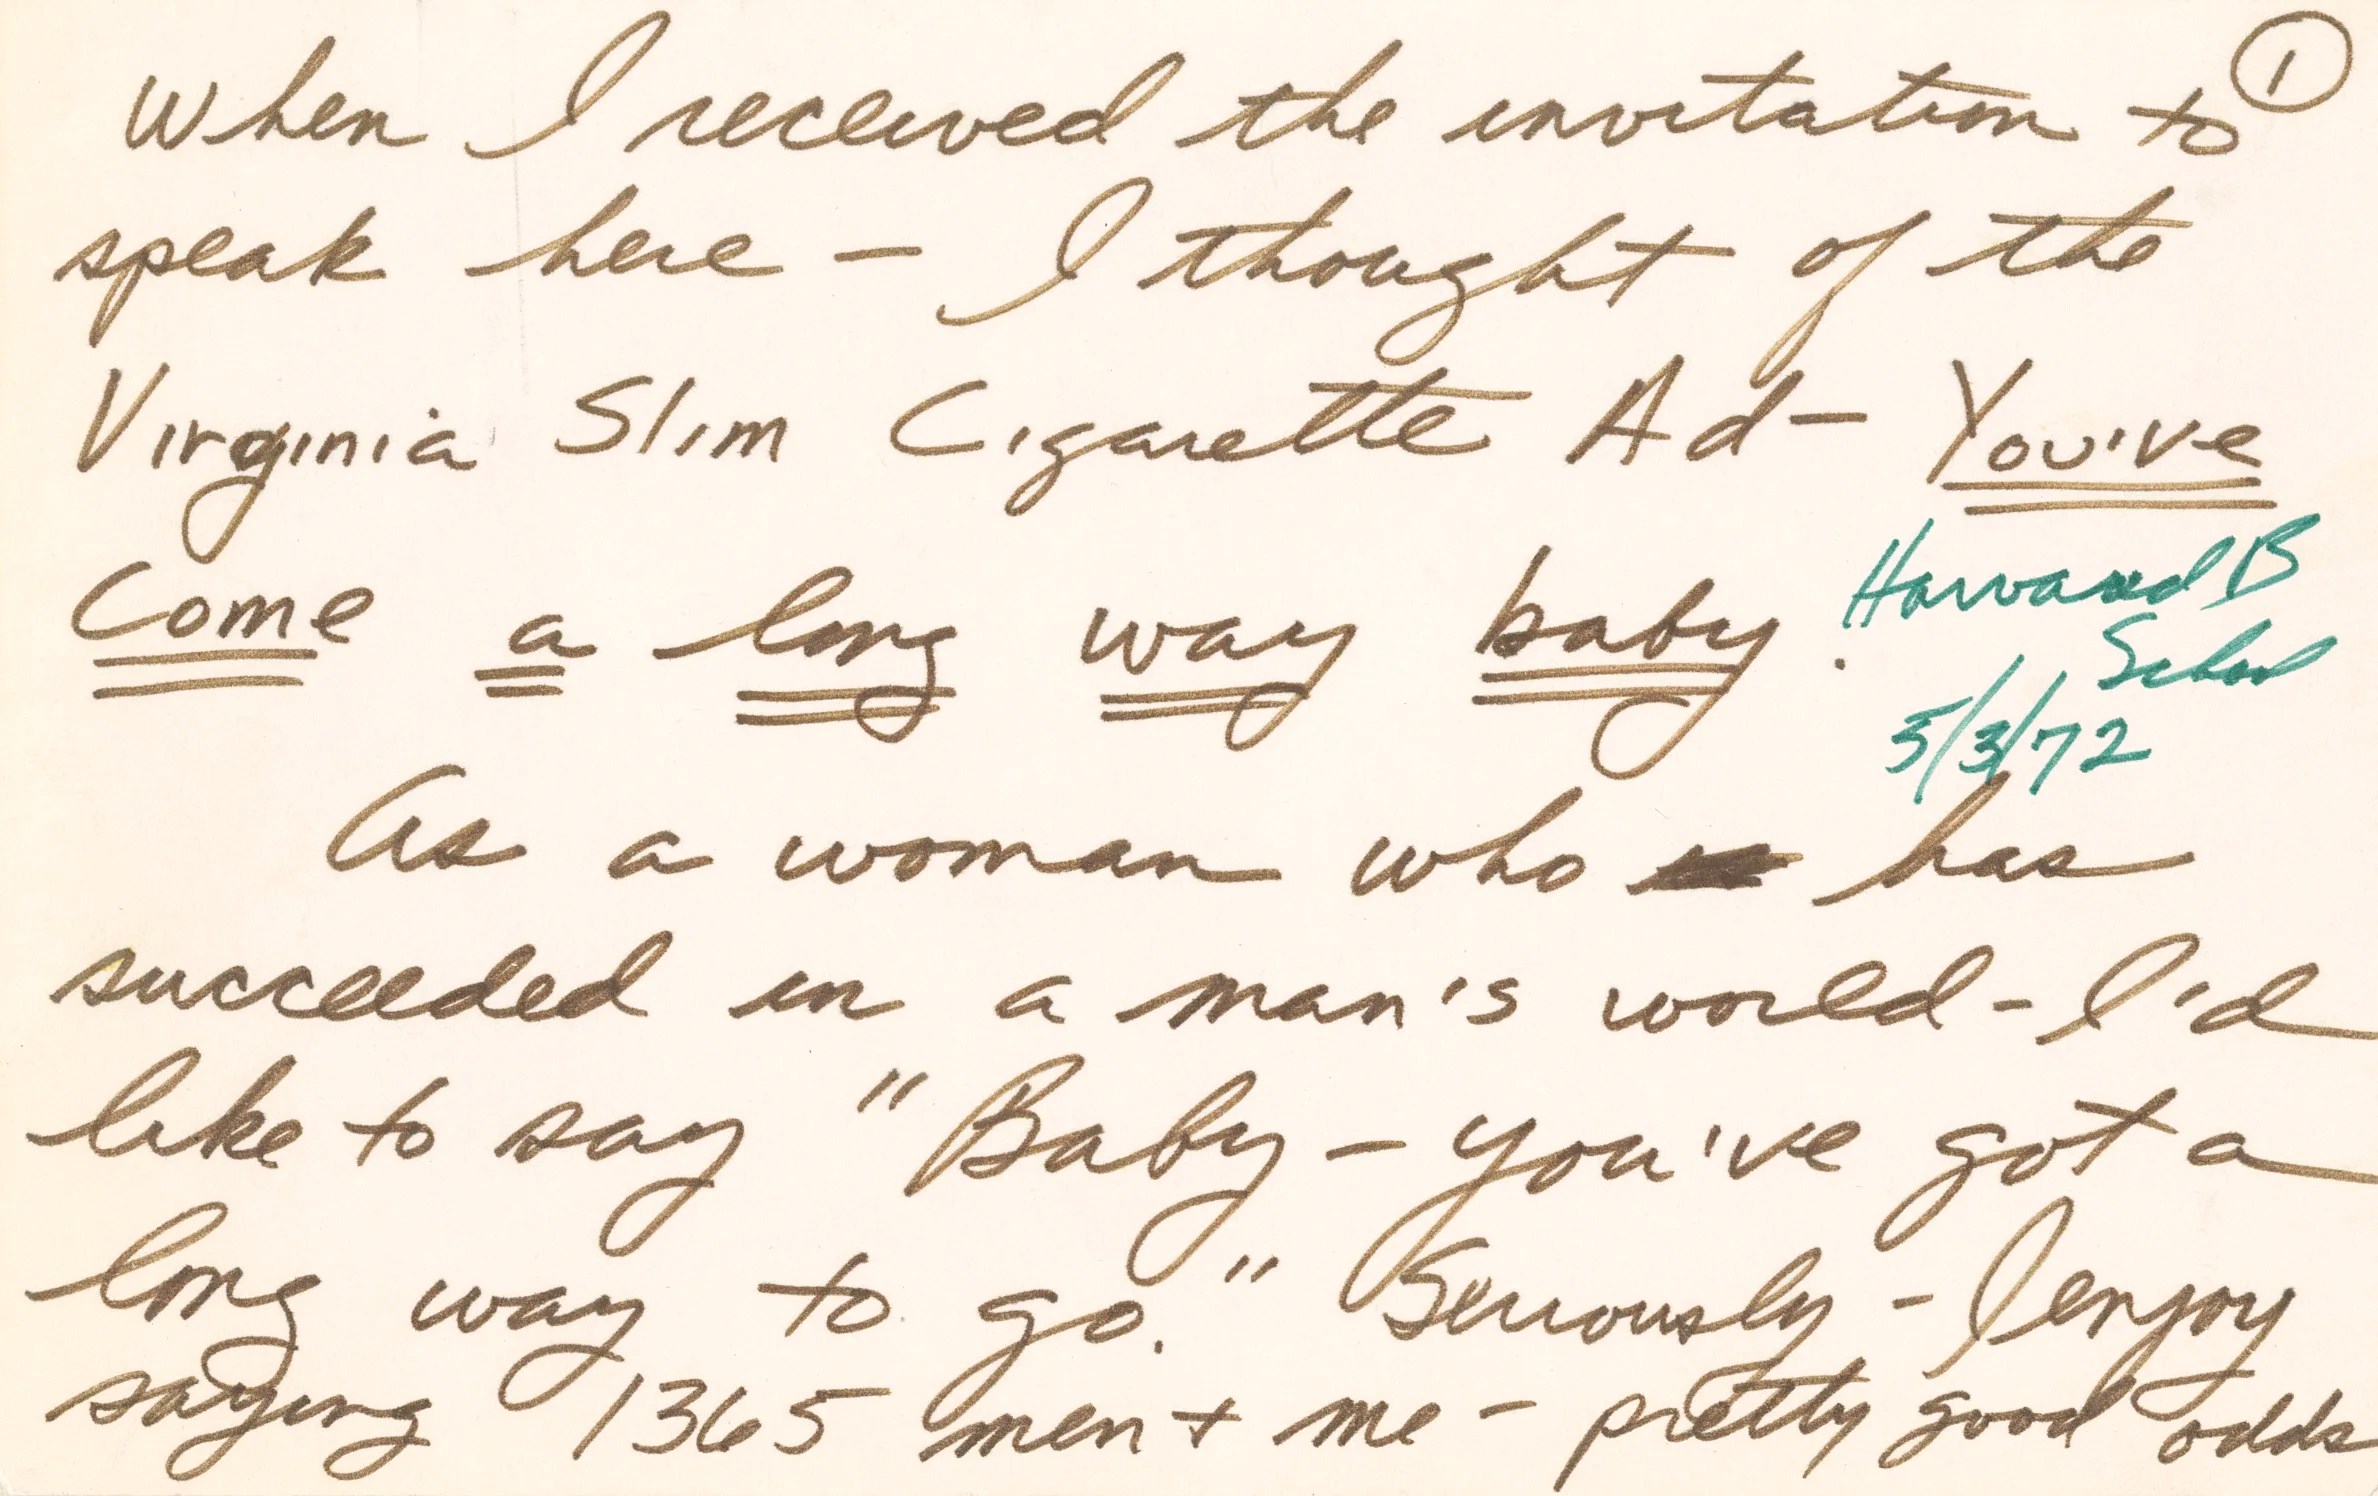 1
When I received the invitation to
speak here – I thought of the
Virginia Slim Cigarette Ad – You've
Come a long way baby.
Harvard B
School
5/3/72
As a woman who has
succeeded in a man's world – I'd
like to say "Baby – you've got a
long way to go." Seriously – I enjoy
saying 1365 men + me – pretty good odds